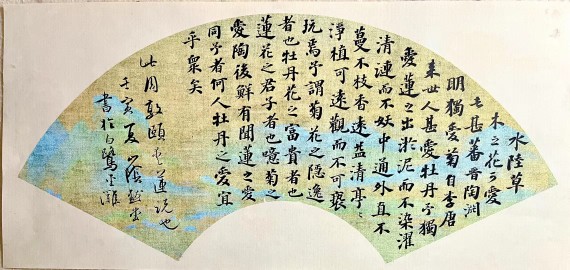 水陸草
木之花可愛
者甚蕃晉陶淵
明獨愛菊自李唐
來世人甚愛牡丹予獨
愛蓮之出淤泥而不染濯
清漣而不妖中通外直不
蔓不枝香遠益清亭々
淨植可遠觀而不可褻
玩焉予謂菊花之隱逸
者也牡丹花之富貴者也
蓮花之君子者也噫菊之
愛陶後鮮有聞蓮之愛
同予者何人牡丹之愛宜
乎衆矣
此周敦頤愛蓮説也
壬寅夏山陰
書於白鷺灘